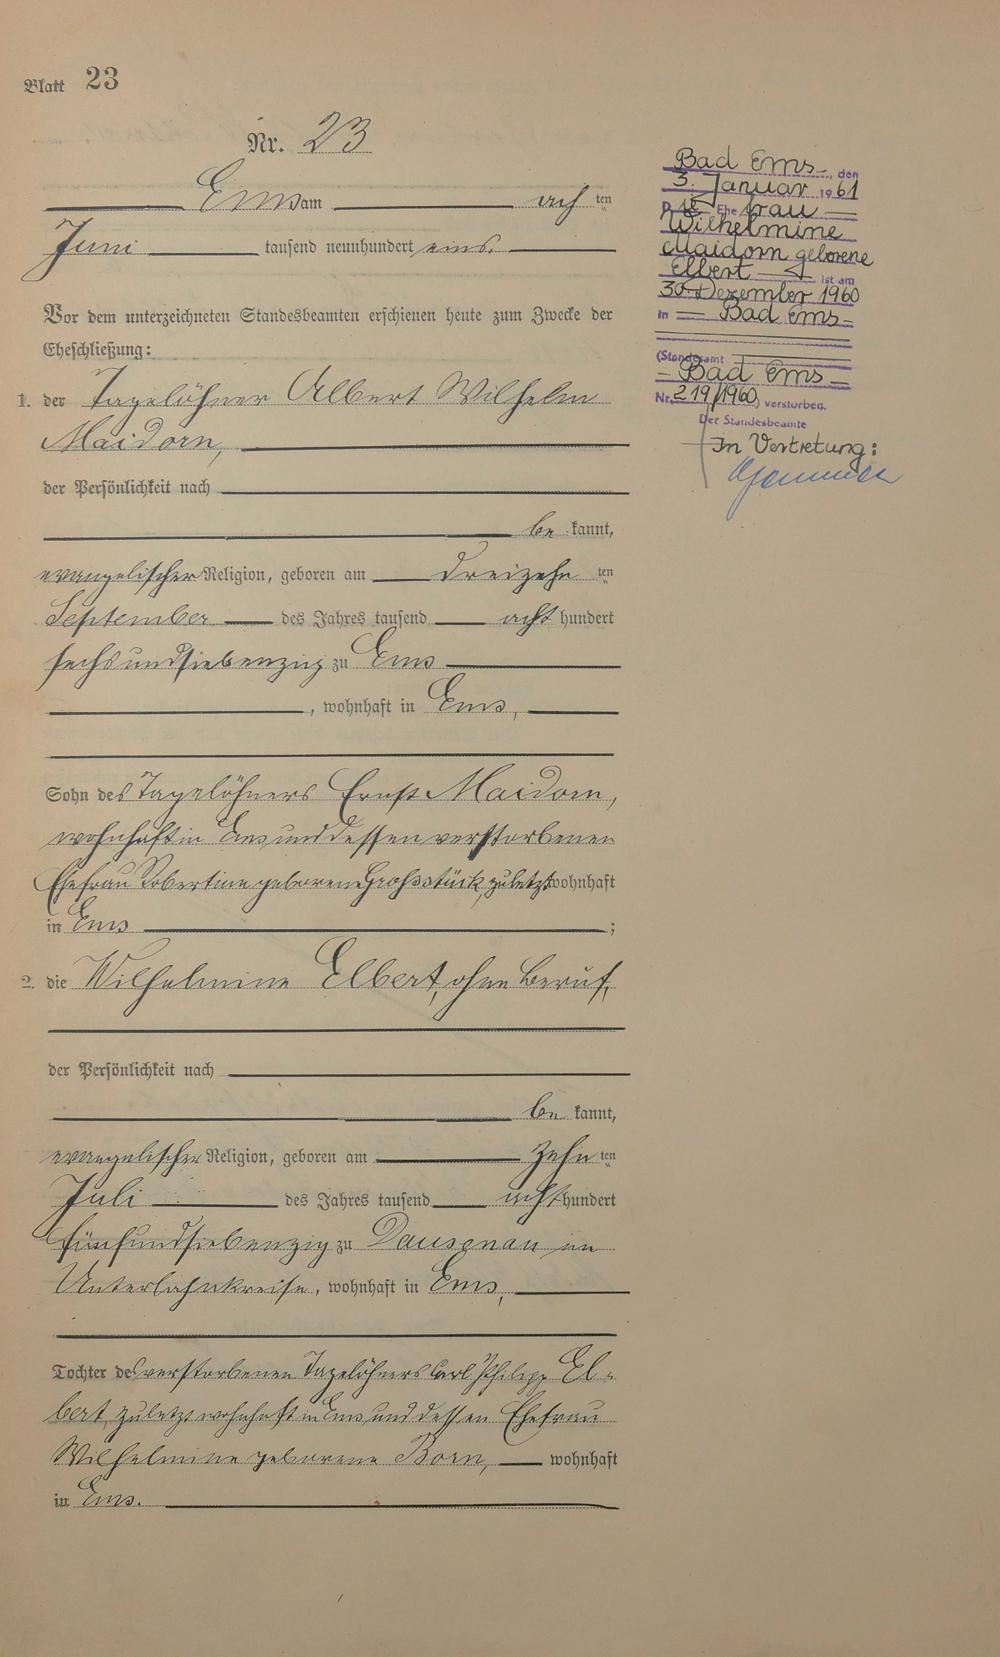 Blatt 23
Nr. 23
Ems am acht ten
Juni tausend neunhundert eins.
Vor dem unterzeichneten Standesbeamten erschienen heute zum Zwecke der
Eheschließung:
1. der Tagelöhner Albert Wilhelm
Maidorn,
der Persönlichkeit nach
be kannt,
evangelischer Religion, geboren am dreizehn ten
September des Jahres tausend acht hundert
sechsundsiebenzig zu Ems
, wohnhaft in Ems,
Sohn des Tagelöhners Ernst Maidorn,
wohnhaft in Ems und dessen verstorbenen
Ehefrau Robertine geborene Großstück, zuletzt wohnhaft
in Ems ;
2. die Wilhelmine Elbert, ohne Beruf,
der Persönlichkeit nach
be kannt,
evangelischer Religion, geboren am zehn ten
Juli des Jahres tausend acht hundert
fünfundsiebenzig zu Dausenau im
Unterlahnkreise, wohnhaft in Ems,
Tochter des verstorbenen Tagelöhners Carl Philipp El-
bert, zuletzt wohnhaft in Ems, und dessen Ehefrau
Wilhelmine geborene Born, wohnhaft
in Ems.
Bad Ems, den
3. Januar 1961
Die Ehefrau
Wilhelmine
Maidorn geborene
Elbert ist am
30. Dezember 1960
in Bad Ems
(Standesamt
Bad Ems
Nr. 219/1960) verstorben.
Der Standesbeamte
In Vertretung: